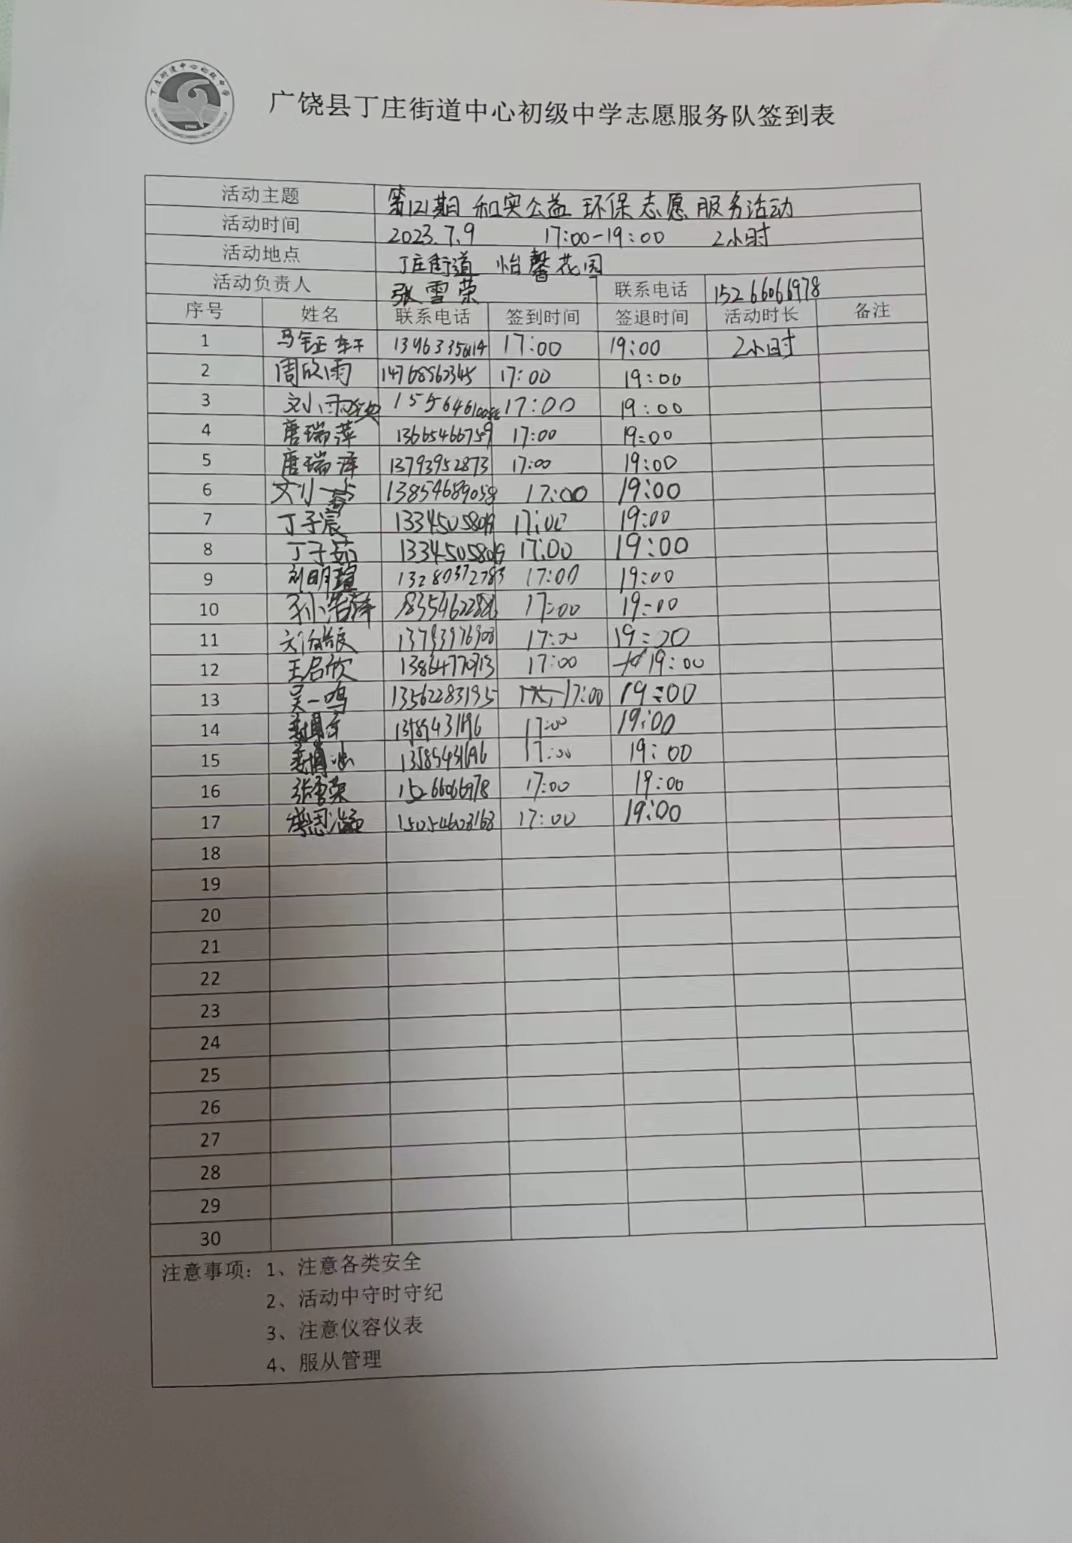 广饶县丁庄街道中心初级中学志愿服务队签到表
活动主题 第121期 和实公益 环保志愿服务活动
活动时间 2023.7.9 17:00-19:00 2小时
活动地点 丁庄街道 怡馨花园
活动负责人 张雪荣 联系电话 15266066978
序号 姓名 联系电话 签到时间 签退时间 活动时长 备注
1 马钰轩 17:00 19:00 2小时
2 周欣雨 14768562345 17:00 19:00
3 17:00 19:00
4 唐瑞萍 13665466759 17:00 19:00
5 唐瑞泽 13793952873 17:00 19:00
6 13854689058 17:00 19:00
7 丁子宸 13345058019 17:00 19:00
8 丁子茹 13345058019 17:00 19:00
9 刘明瑄 13280372783 17:00 19:00
10 17:00 19:00
11 17:00 19:20
12 王启欣 13864770713 17:00 19:00
13 吴一鸣 13562283195 17:00 19:00
14 17:00 19:00
15 17:00 19:00
16 张雪荣 15266066978 17:00 19:00
17 15054603163 17:00 19:00
18
19
20
21
22
23
24
25
26
27
28
29
30
注意事项：1、注意各类安全
2、活动中守时守纪
3、注意仪容仪表
4、服从管理